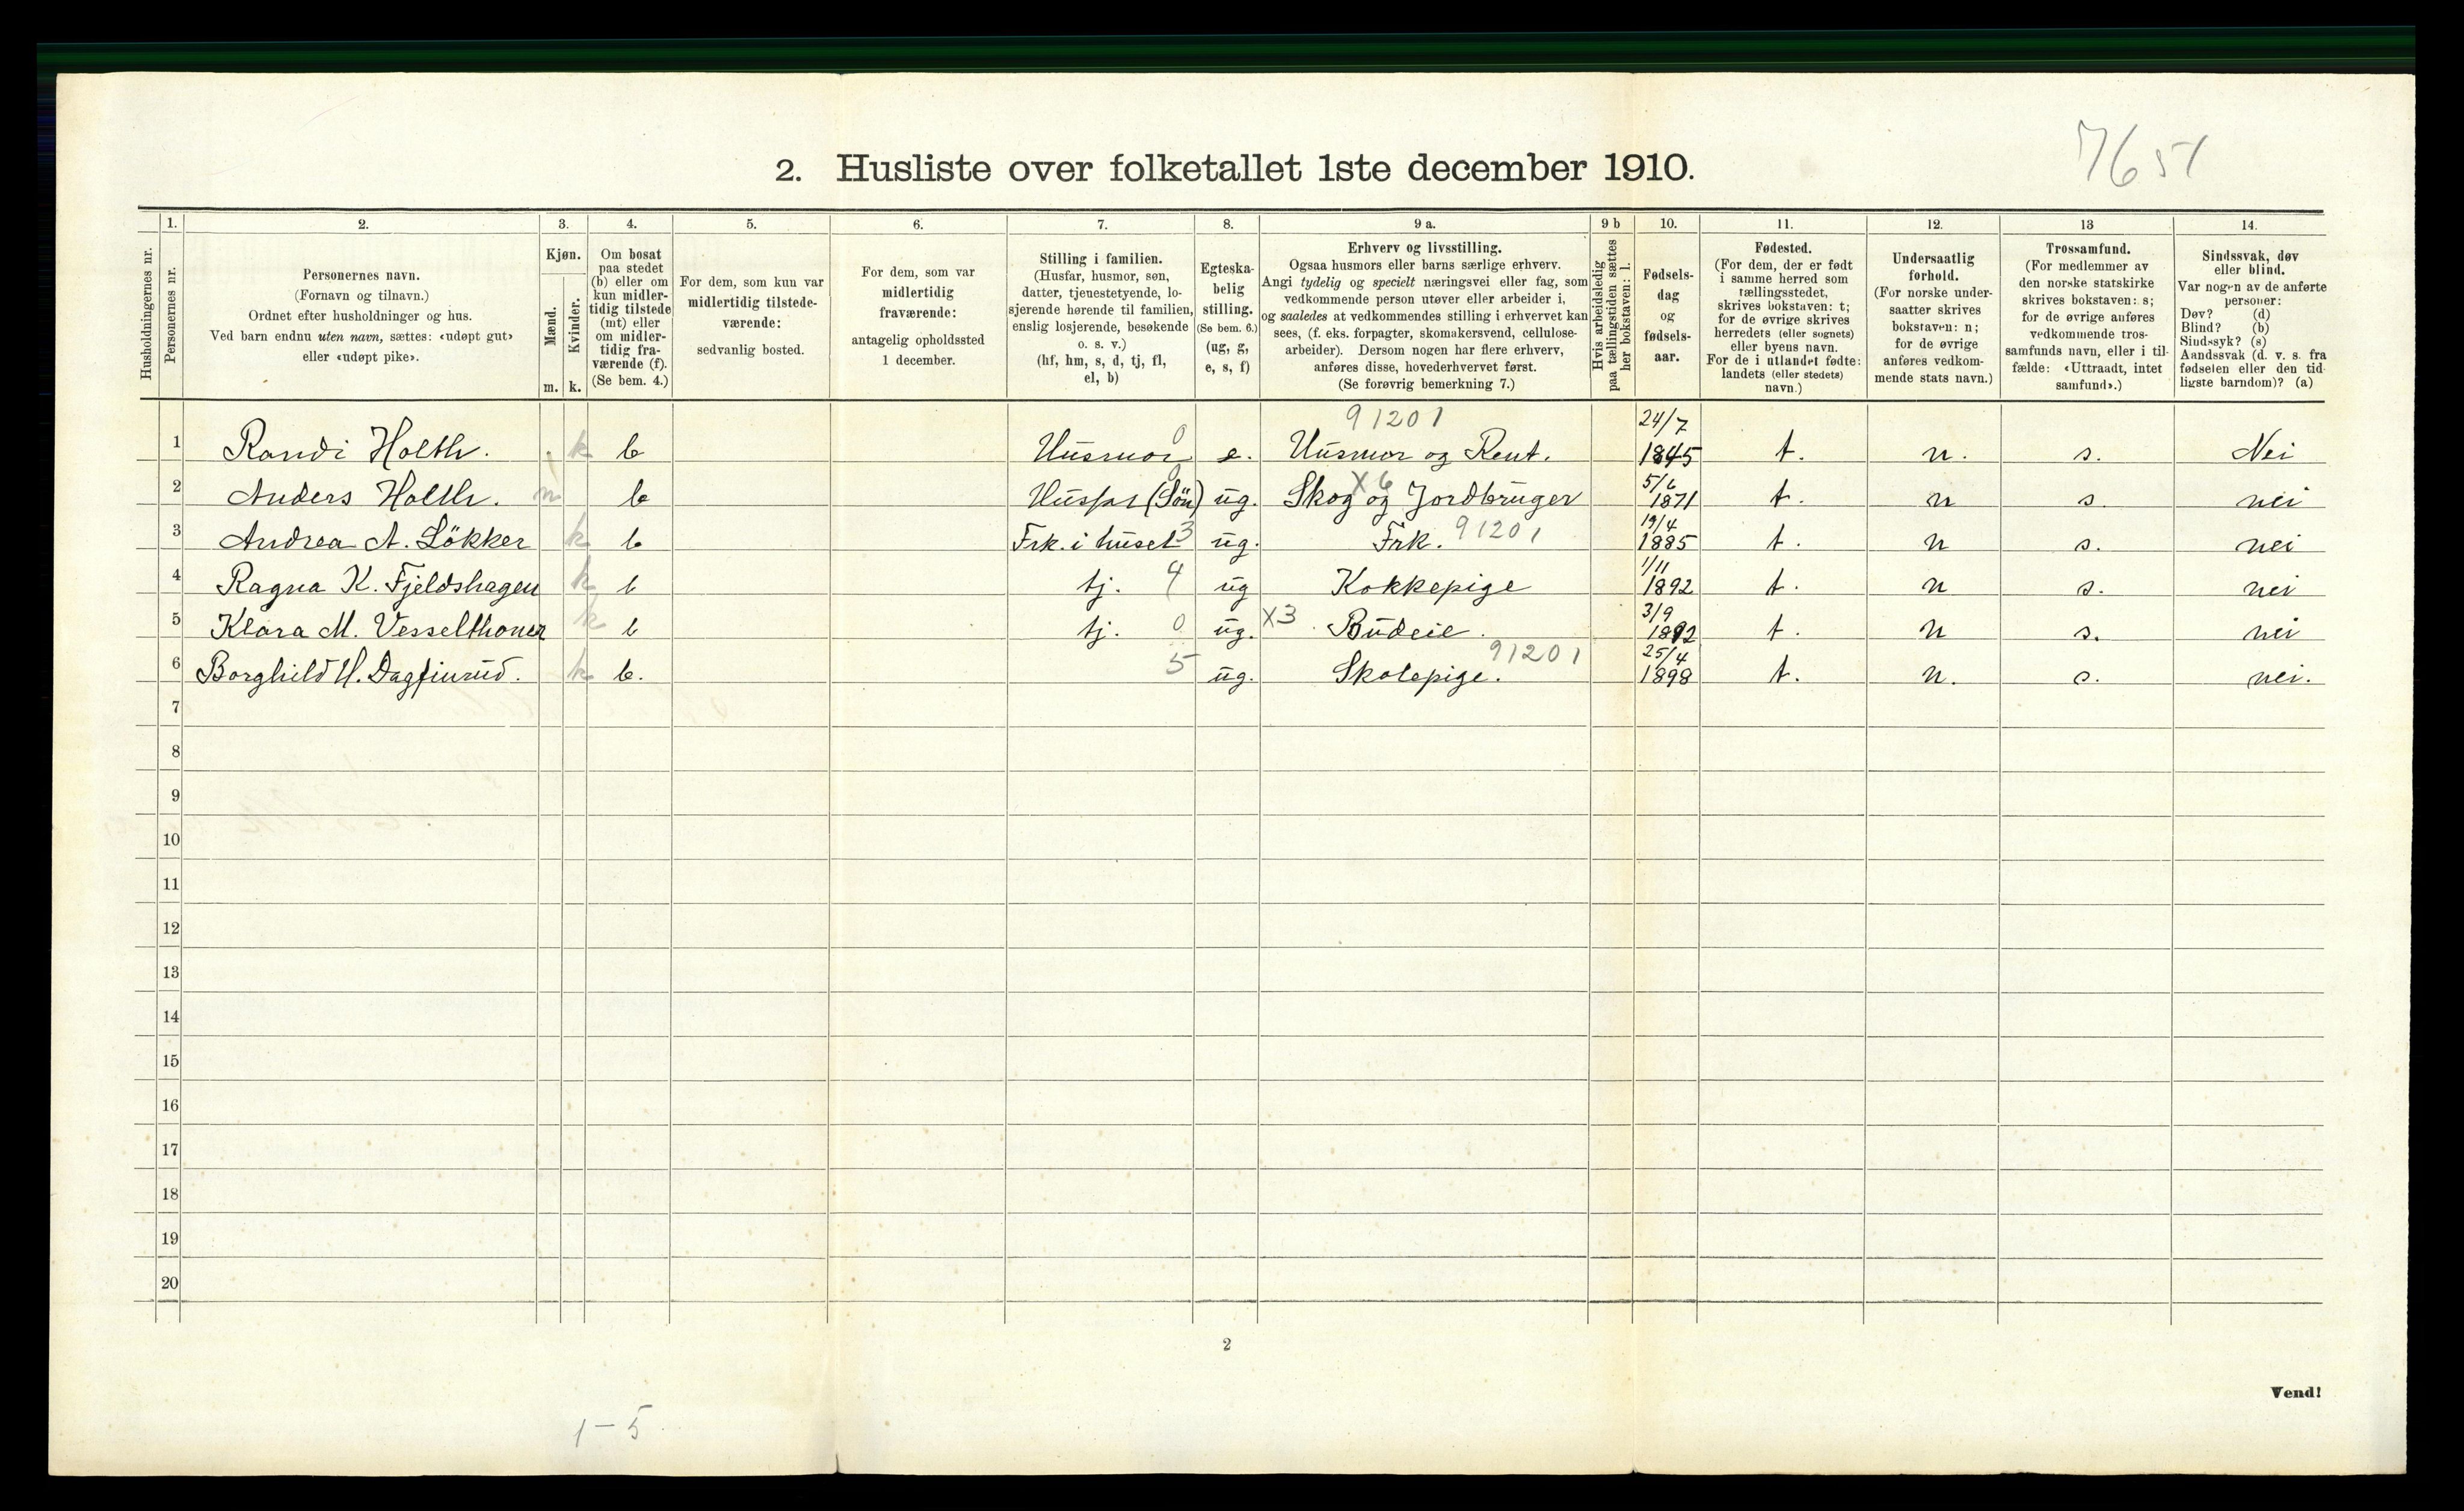 7651
2. Husliste over folketallet 1ste december 1910.
1. 2. 3. 4. 5. 6. 7. 8. 9 a. 9 b 10. 11. 12. 13 14.
Husholdningernes nr.
Personernes nr.
Personernes navn.
(Fornavn og tilnavn.)
Ordnet efter husholdninger og hus.
Ved barn endnu uten navn, sættes: «udøpt gut»
eller «udøpt pike».
Kjøn.
Mænd.
Kvinder.
m. k.
Om bosat
paa stedet
(b) eller om
kun midler-
tidig tilstede
(mt) eller
om midler-
tidig fra-
værende (f).
(Se bem. 4.)
For dem, som kun var
midlertidig tilstede-
værende:
sedvanlig bosted.
For dem, som var
midlertidig
fraværende:
antagelig opholdssted
1 december.
Stilling i familien.
(Husfar, husmor, søn,
datter, tjenestetyende, lo-
sjerende hørende til familien,
enslig losjerende, besøkende
o. s. v.)
(hf, hm, s, d, tj, fl,
el, b)
Egteska-
belig
stilling.
(Se bem. 6.)
(ug, g,
e, s, f)
Erhverv og livsstilling.
Ogsaa husmors eller barns særlige erhverv.
Angi tydelig og specielt næringsvei eller fag, som
vedkommende person utøver eller arbeider i,
og saaledes at vedkommendes stilling i erhvervet kan
sees, (f. eks. forpagter, skomakersvend, cellulose-
arbeider). Dersom nogen har flere erhverv,
anføres disse, hovederhvervet først.
(Se forøvrig bemerkning 7.)
Hvis arbeidsledig
paa tællingstiden sættes
her bokstaven: l.
Fødsels-
dag
og
fødsels-
aar.
Fødested.
(For dem, der er født
i samme herred som
tællingsstedet,
skrives bokstaven: t;
for de øvrige skrives
herredets (eller sognets)
eller byens navn.
For de i utlandet fødte:
landets (eller stedets)
navn.)
Undersaatlig
forhold.
(For norske under-
saatter skrives
bokstaven: n;
for de øvrige
anføres vedkom-
mende stats navn.)
Trossamfund.
(For medlemmer av
den norske statskirke
skrives bokstaven: s;
for de øvrige anføres
vedkommende tros-
samfunds navn, eller i til-
fælde: «Uttraadt, intet
samfund».)
Sindssvak, døv
eller blind.
Var nogen av de anførte
personer:
Døv? (d)
Blind? (b)
Sindssyk? (s)
Aandssvak (d. v. s. fra
fødselen eller den tid-
ligste barndom)? (a)
91201 24/7
1 Randi Holth. k b Husmor 0 e. Husmor og Rent. 1845 t. n. s. Nei
2 Anders Holth. m b Husfar (Sön) 0 ug. Skog og Jordbruger X6 5/6 1871 t. n s. nei
3 Andrea A. Lökker k b Frk. i huset 3 ug. Frk. 91201 19/4 1885 t. n s. nei
4 Ragna K. Fjeldshagen k b tj. 4 ug Kokkepige 1/11 1892 t. n s. nei
5 Klara M. Vesselthonen k b tj. 0 ug. X3 Budeie. 3/9 1892 t. n s. nei
6 Borghild H. Dagfinrud. k b. 5 ug. Skolepige. 91201 25/4 1898 t. n. s. nei.
7
8
9
10
11
12
13
14
15
16
17
18
19
20
2
Vend!
1 – 5